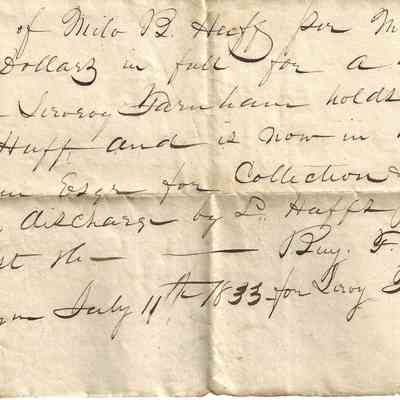 of Milo B. Huff per M
Dollars in full for a
Leroy Farnham holds
Huff and is now in
Esqr for Collection
discharge by L. Huffs
st the — Benj. F.
July 11th 1833 for Leroy